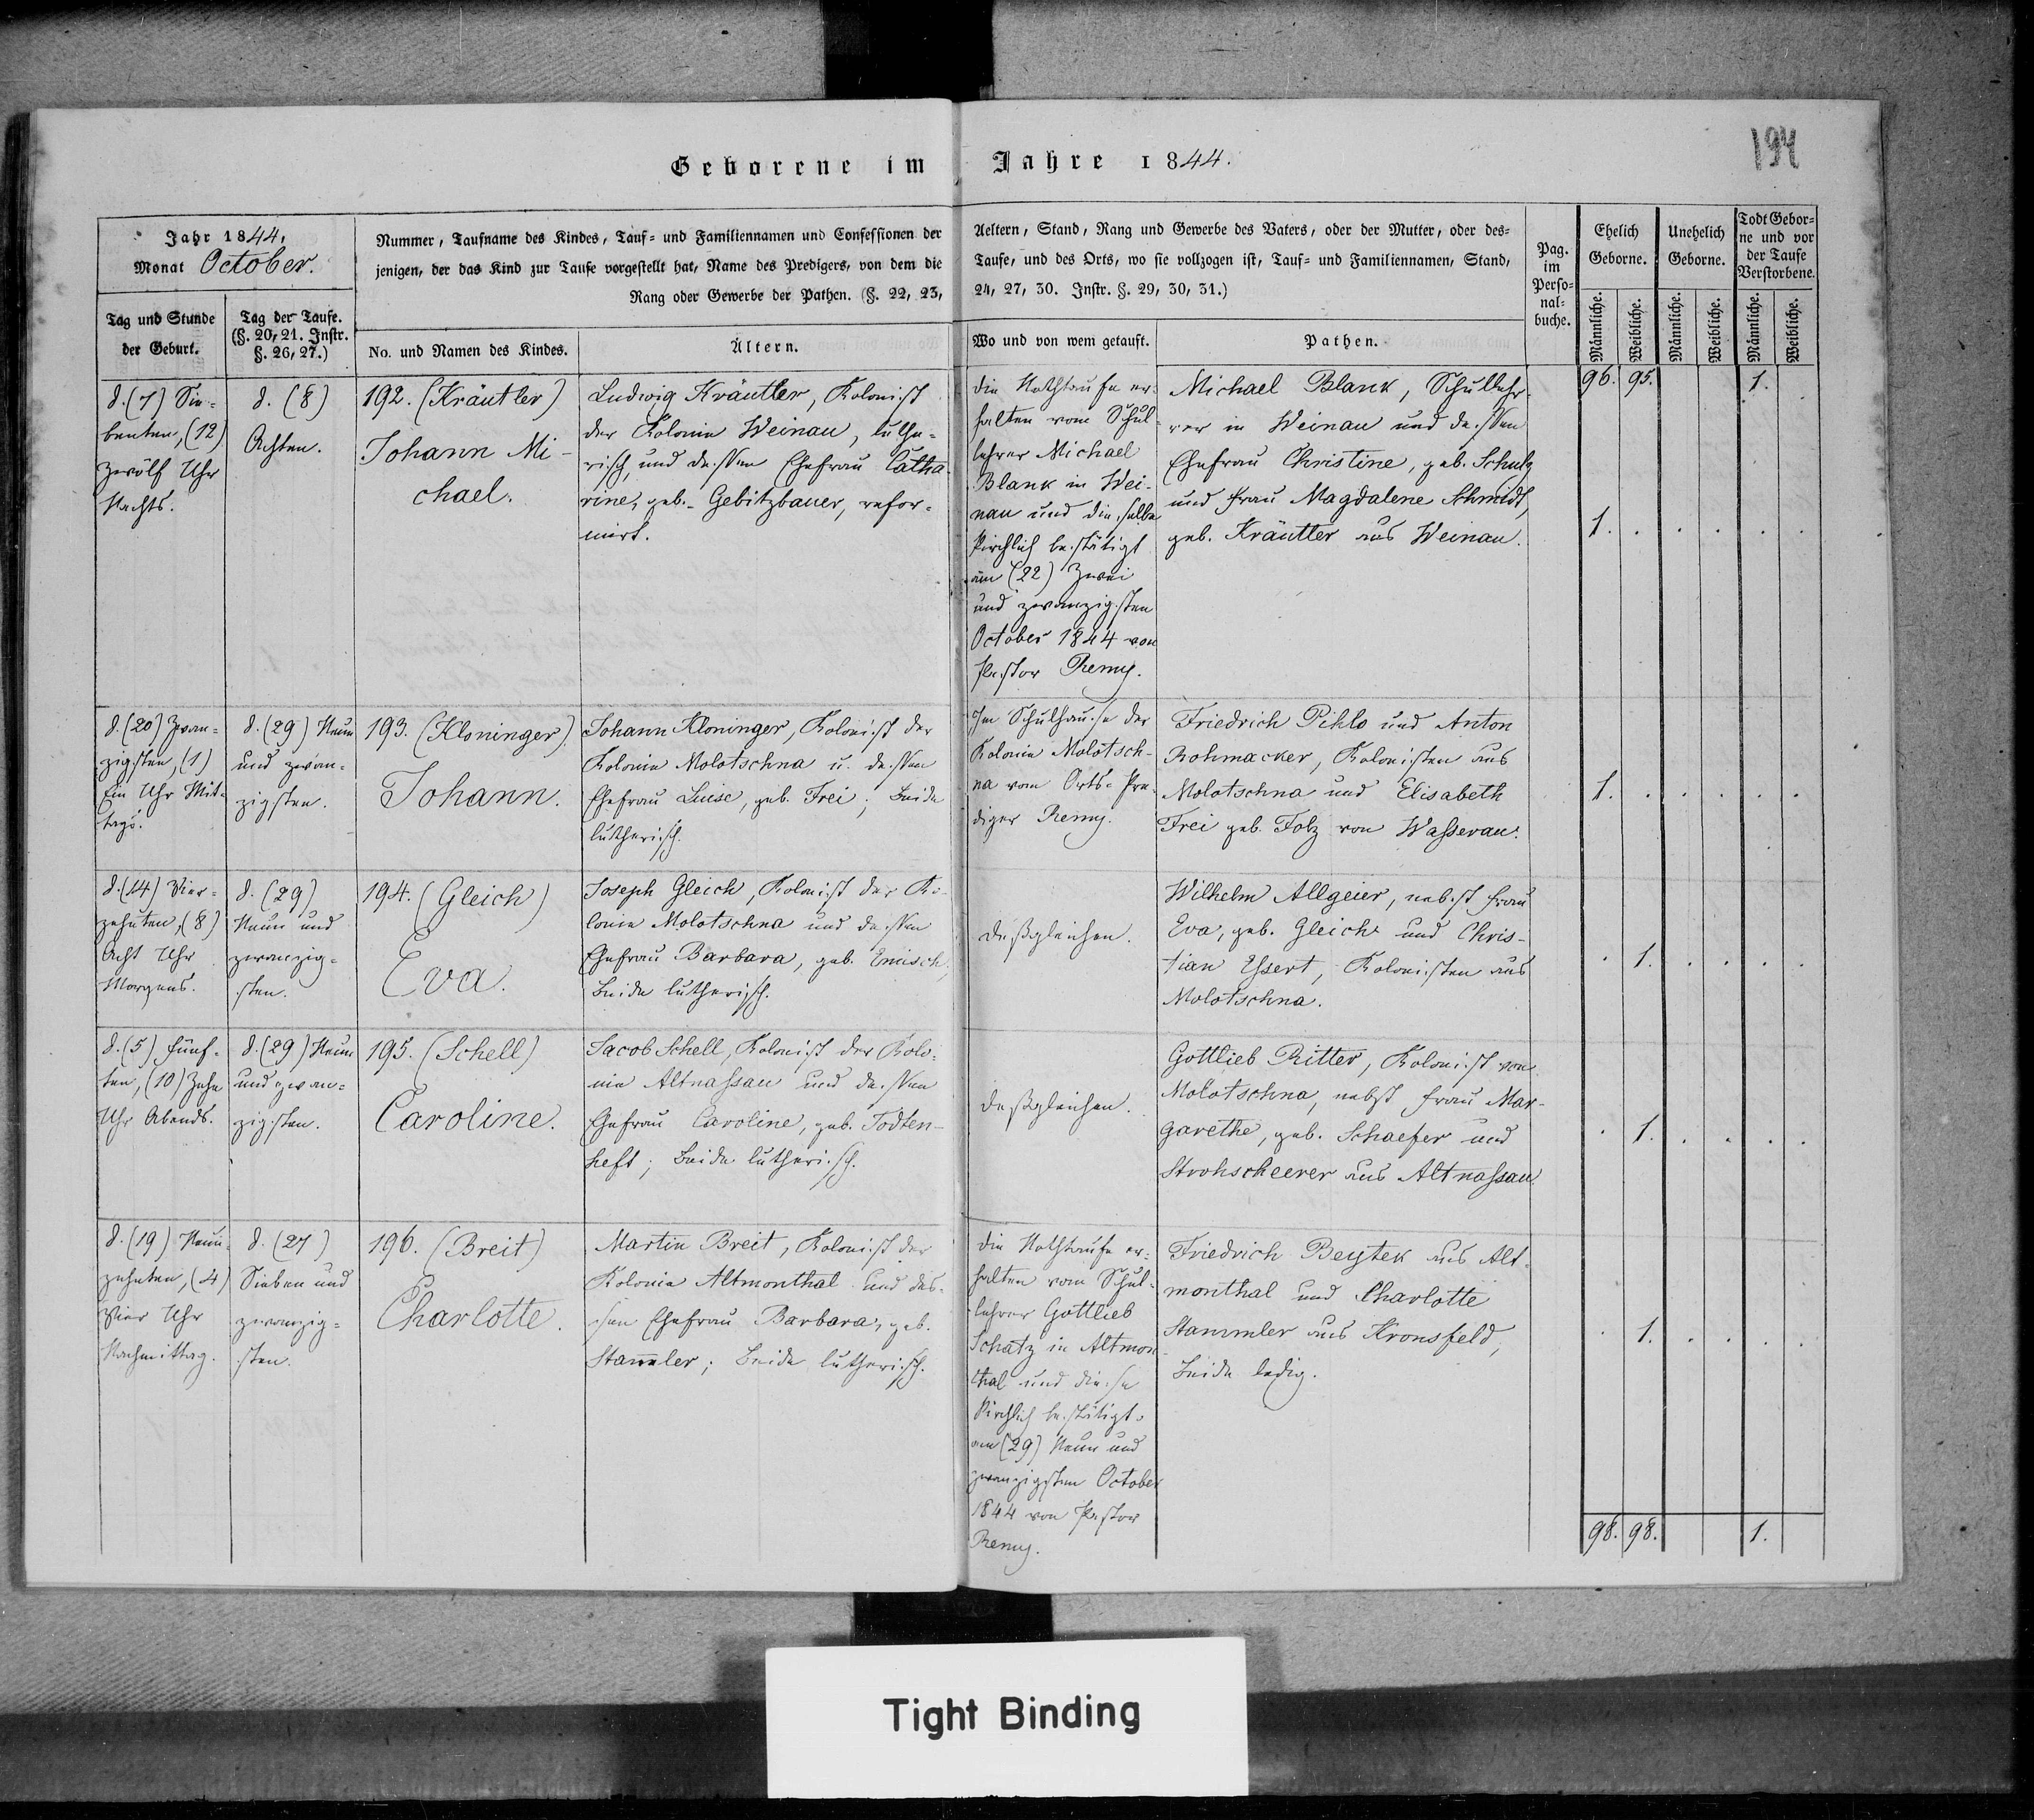 Geborene im Jahre 1844.
194
Jahr 1844,
Monat October.
Nummer, Taufname des Kindes, Tauf- und Familiennamen und Confessionen der
jenigen, der das Kind zur Taufe vorgestellt hat, Name des Predigers, von dem die
Rang oder Gewerbe der Pathen. (§. 22, 23,
Aeltern, Stand, Rang und Gewerbe des Vaters, oder der Mutter, oder des-
Taufe, und des Orts, wo sie vollzogen ist, Tauf- und Familiennamen, Stand,
24, 27, 30. Instr. §. 29, 30, 31.)
Pag.
im
Perso-
nal-
buche.
Ehelich
Geborne.
Unehelich
Geborne.
Todt Gebor-
ne und vor
der Taufe
Verstorbene.
Tag und Stunde
der Geburt.
Tag der Taufe.
(§. 20, 21. Instr.
§. 26, 27.)
No. und Namen des Kindes.
Ältern.
Wo und von wem getauft.
Pathen.
Männliche.
Weibliche.
Männliche.
Weibliche.
Männliche.
Weibliche.
96. 95. 1.
d. (7) Sie-
benten, (12)
Zwölf Uhr
Nachts.
d. (8)
Achten.
192. (Kräutler)
Johann Mi-
chael.
Ludwig Kräutler, Kolonist
der Kolonie Weinau, luthe-
risch, und dessen Ehefrau Catha-
rine, geb. Gebitzbauer, refor-
mirt.
die Nothtaufe er-
halten vom Schul-
lehrer Michael
Blank in Wei-
nau und dieselbe
kirchlich bestätigt
am (22) Zwei
und zwanzigsten
October 1844 von
Pastor Remy.
Michael Blank, Schulleh-
rer in Weinau und dessen
Ehefrau Christine, geb. Schulz
und Frau Magdalene Schmidt,
geb. Kräutler aus Weinau.
1. . . . . .
d. (20) Zwan-
zigsten, (1)
Ein Uhr Mit-
tags.
d. (29) Neun
und zwan-
zigsten.
193. (Kloninger).
Johann.
Johann Kloninger, Kolonist der
Kolonie Molotschna u. dessen
Ehefrau Luise, geb. Frei; Beide
lutherisch.
Im Schulhause der
Kolonie Molotsch-
na vom Orts-Pre-
diger Remy.
Friedrich Pihlo und Anton
Rohmacker, Kolonisten aus
Molotschna und Elisabeth
Frei geb. Folz von Wasserau.
1. . . . . .
d. (14) Vier-
zehnten, (8)
Acht Uhr
Morgens.
d. (29)
Neun und
zwanzig-
sten.
194. (Gleich)
Eva.
Joseph Gleich, Kolonist der Ko-
lonie Molotschna und dessen
Ehefrau Barbara, geb. Emisch;
Beide lutherisch.
deßgleichen.
Wilhelm Allgeier, nebst Frau
Eva, geb. Gleich und Chris-
tian Essert, Kolonisten aus
Molotschna.
. 1. . . . .
d. (5) Fünf-
ten, (10) Zehn
Uhr Abends.
d. (29) Neun
und zwan-
zigsten.
195. (Schell)
Caroline.
Jacob Schell, Kolonist der Kolo-
nie Altnassau und dessen
Ehefrau Caroline, geb. Todten-
heft; Beide lutherisch.
deßgleichen.
Gottlieb Ritter, Kolonist von
Molotschna, nebst Frau Mar-
garethe, geb. Schaefer und
Strohscheerer aus Altnassau.
. 1. . . . .
d. (19) Neun-
zehnten, (4)
Vier Uhr
Nachmittag.
d. (27)
Sieben und
zwanzig-
sten.
196. (Breit)
Charlotte.
Martin Breit, Kolonist der
Kolonie Altmonthal und des-
sen Ehefrau Barbara, geb.
Stam̄ler; Beide lutherisch.
die Nothtaufe er-
halten vom Schul-
lehrer Gottlieb
Schatz in Altmon-
thal und diese
kirchlich bestätigt
am (29) Neun und
zwanzigsten October
1844 von Pastor
Remy.
Friedrich Beytek aus Alt-
monthal und Charlotte
Stammler aus Kronsfeld,
Beide ledig.
. 1. . . . .
98. 98. 1.
Tight Binding